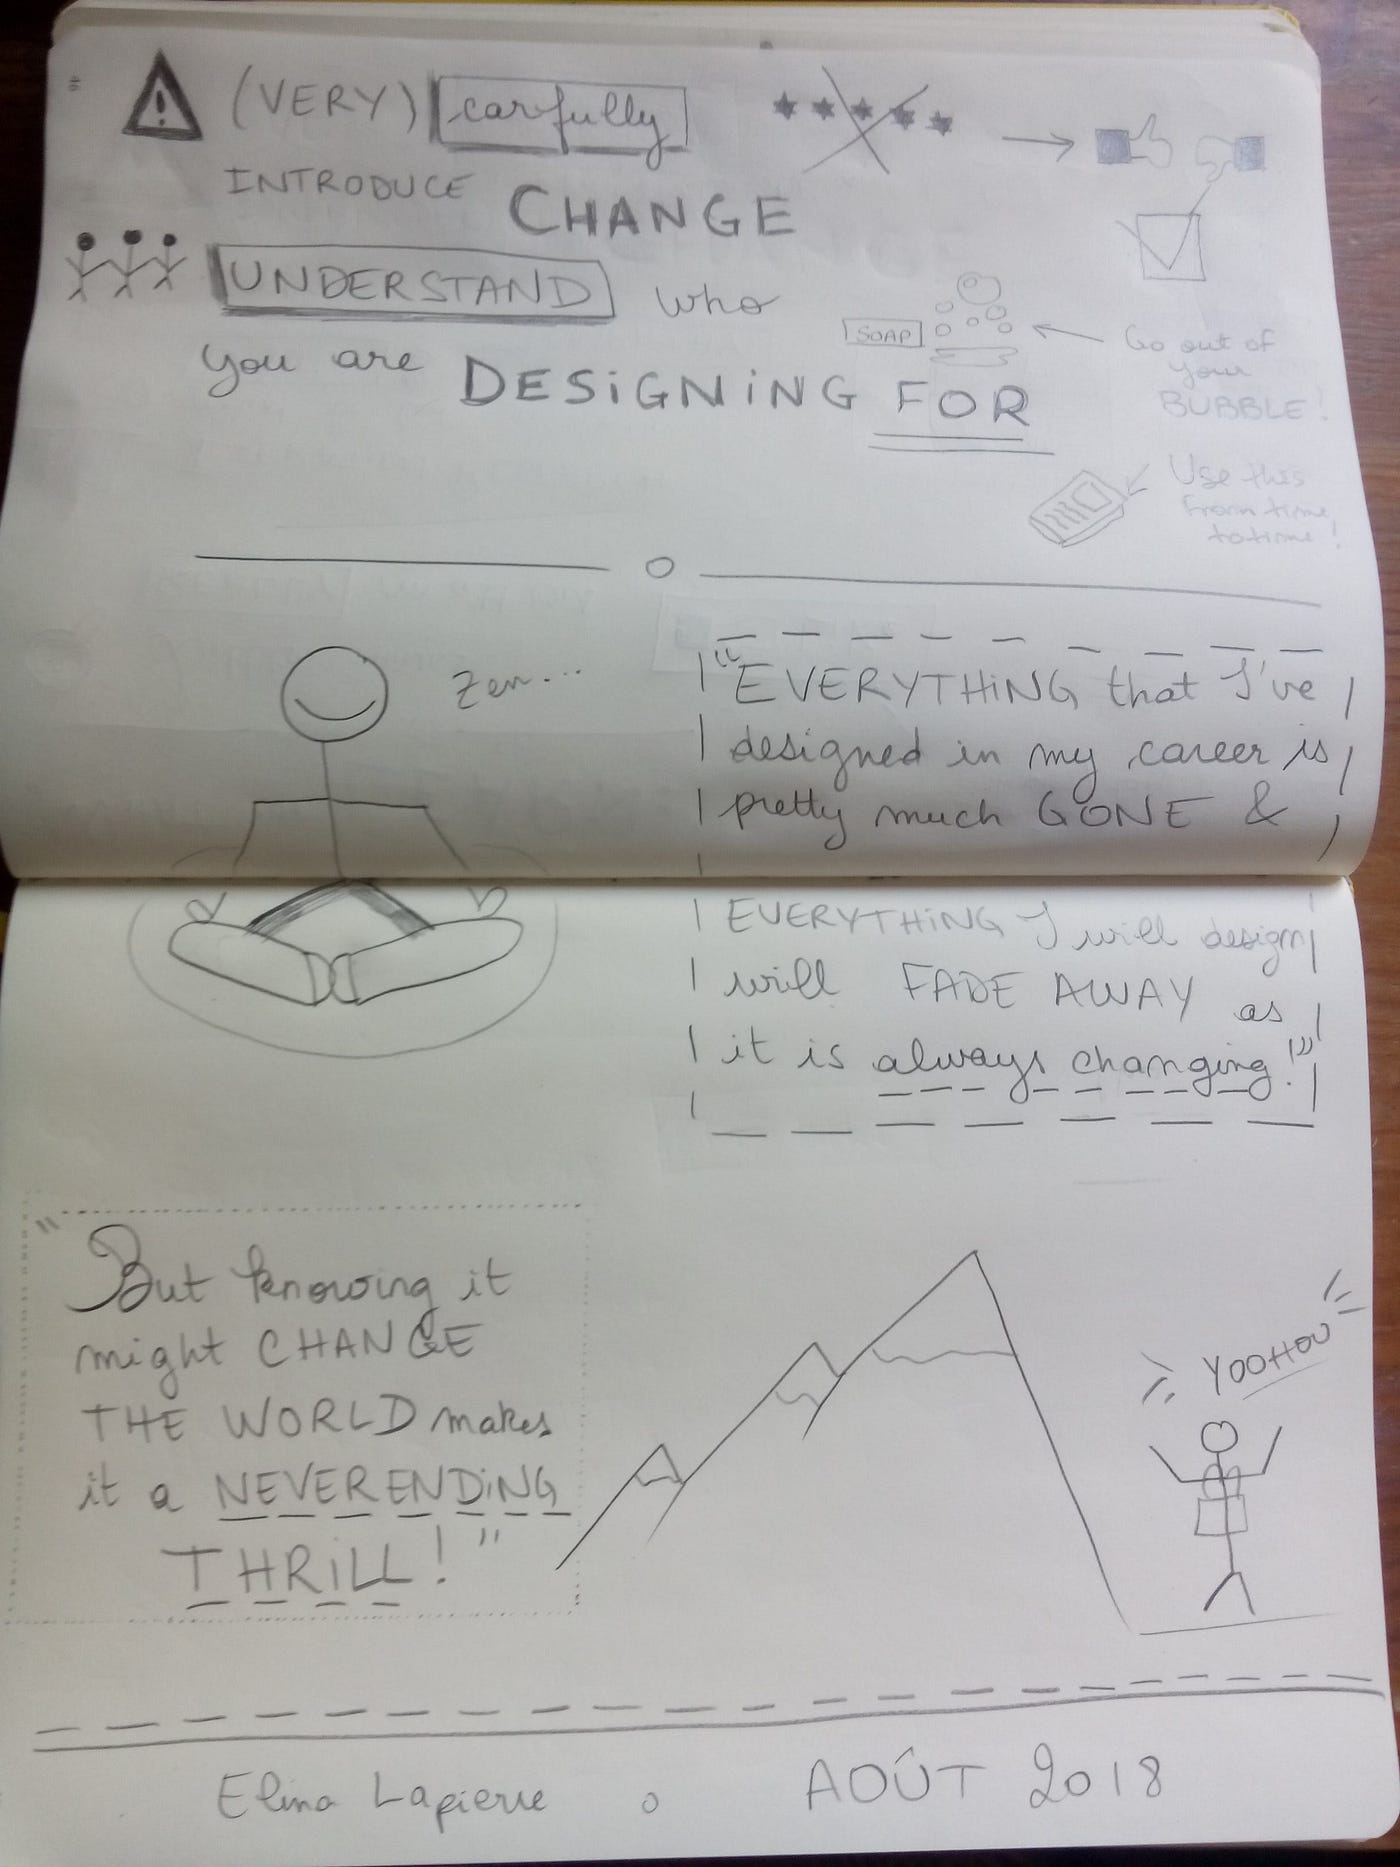 ! (VERY) carefully
INTRODUCE CHANGE
UNDERSTAND who
you are DESIGNING FOR
SOAP
Go out of
your
BUBBLE!
Use this
from time
to time!
Zen...
"EVERYTHING that I've
designed in my career is
pretty much GONE &
EVERYTHING I will design
will FADE AWAY as
it is always changing!"
"But knowing it
might CHANGE
THE WORLD makes
it a NEVERENDING
THRILL!"
YOOHOU
Elina Lapierre o AOÛT 2018